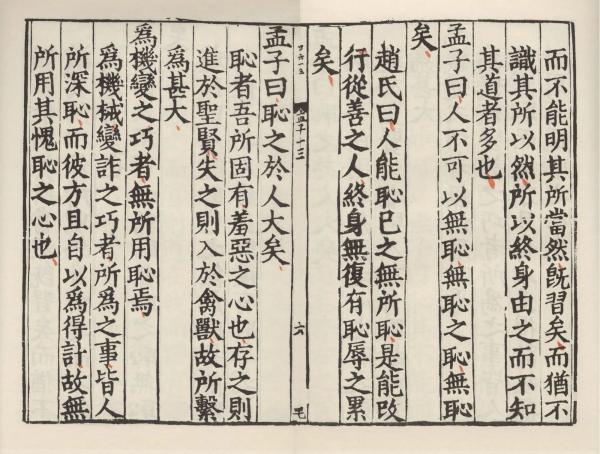 而不能明其所當然既習矣而猶不
識其所以然所以終身由之而不知
其道者多也
孟子曰人不可以無恥無恥之恥無恥
矣
趙氏曰人能恥已之無所恥是能改
行從善之人終身無復有恥辱之累
矣
孟子十三
六
孟子曰恥之於人大矣
恥者吾所固有羞惡之心也存之則
進於聖賢失之則入於禽獸故所繫
爲甚大
爲機變之巧者無所用恥焉
爲機械變詐之巧者所爲之事皆人
所深恥而彼方且自以爲得計故無
所用其愧恥之心也